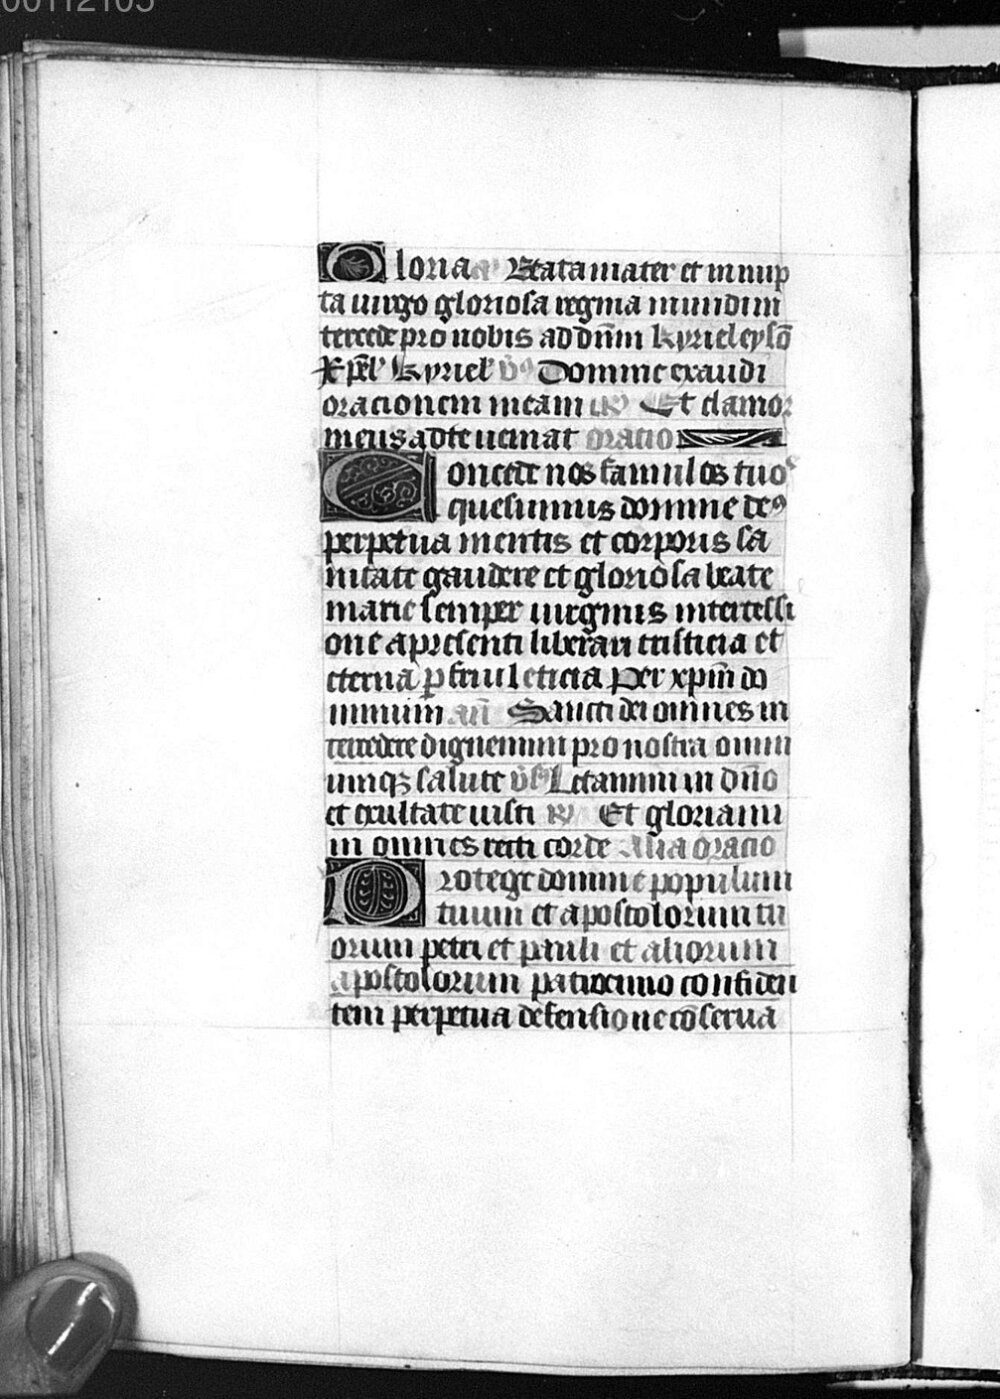 00112105
Gloria an̄ Beata mater et innup
ta uirgo gloriosa regina mundi in
tercede pro nobis ad dn̄m kyrieleysō
Xp̄el' kyriel' v̄s Domine exaudi
oracionem meam R Et clamor
meus ad te ueniat oracio
Concede nos famulos tuos
quesumus domine deꝰ
perpetua mentis et corporis sa
nitate gaudere et gloriosa beate
marie semper uirginis intercessi
one a presenti liberari tristicia et
eterna p̄frui leticia Per xpm̄ do
minum an̄ Sancti dei omnes in
tercedere dignemini pro nostra omni
umqꝫ salute v̄s Letamini in dn̄o
et exultate iusti R Et gloriami
in omnes recti corde Alia oracio
Protege domine populum
tuum et apostolorum tu
orum petri et pauli et aliorum
apostolorum patrocinio confiden
tem perpetua defensione cōserua